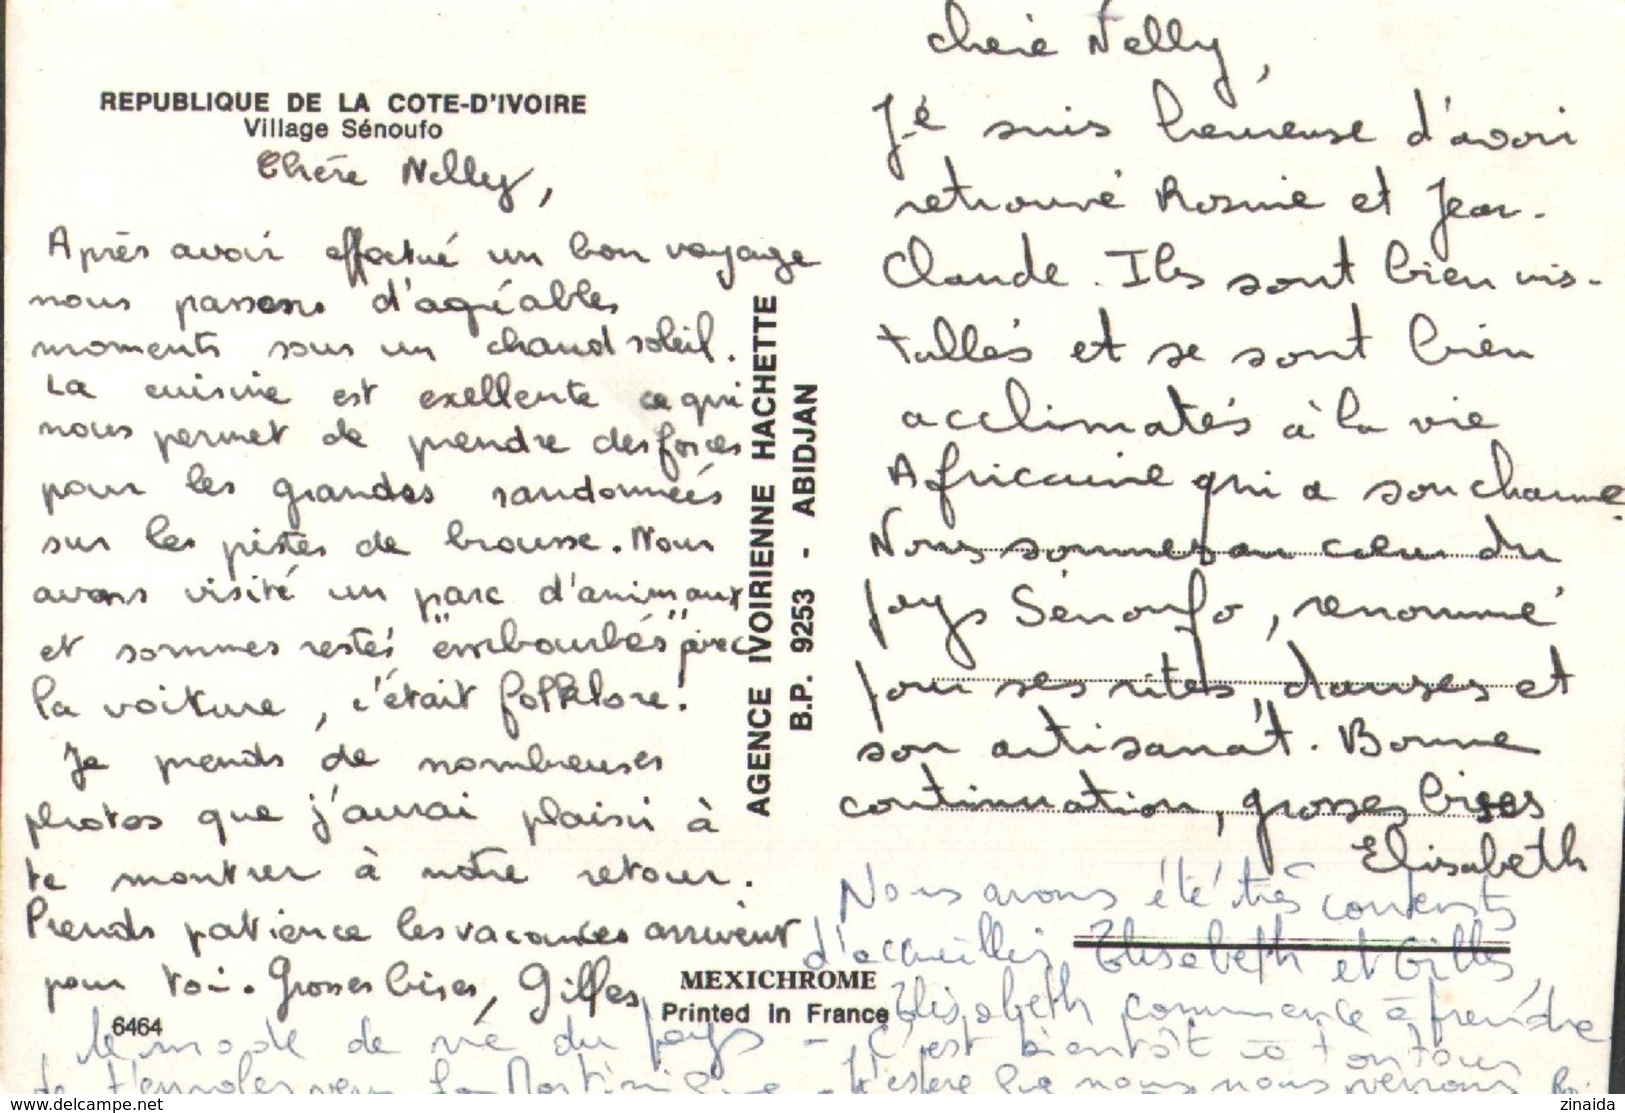 REPUBLIQUE DE LA COTE-D'IVOIRE
Village Sénoufo
Chère Nelly,
Après avoir effectué un bon voyage
nous passons d'agréables
moments sous un chaud soleil.
La cuisine est exellente ce qui
nous permet de prendre des forces
pour les grandes randonnées
sur les pistes de brousse. Nous
avons visité un parc d'animaux
et sommes restés "embourbés" avec
la voiture, c'était folklore!
Je prends de nombreuses
photos que j'aurai plaisir à
te montrer à notre retour.
Prends patience les vacances arrivent
pour toi. Grosses bises, Gilles
AGENCE IVOIRIENNE HACHETTE
B.P. 9253 - ABIDJAN
Chère Nelly,
Je suis heureuse d'avoir
retrouvé Rosine et Jean-
Claude. Ils sont bien ins-
tallés et se sont bien
acclimatés à la vie
Africaine qui a son charme.
Nous sommes au cœur du
pays Sénoufo, renommé
pour ses rites, danses et
son artisanat. Bonne
continuation, grosses bises
Elisabeth
Nous avons été très contents
d'accueillir Elisabeth et Gilles,
Elisabeth commence à prendre
le mode de vie du pays - C'est bientôt à ton tour
de t'envoler vers la Martinique - J'espère que nous nous verrons
MEXICHROME
Printed in France
6464
www.delcampe.net
zinaida